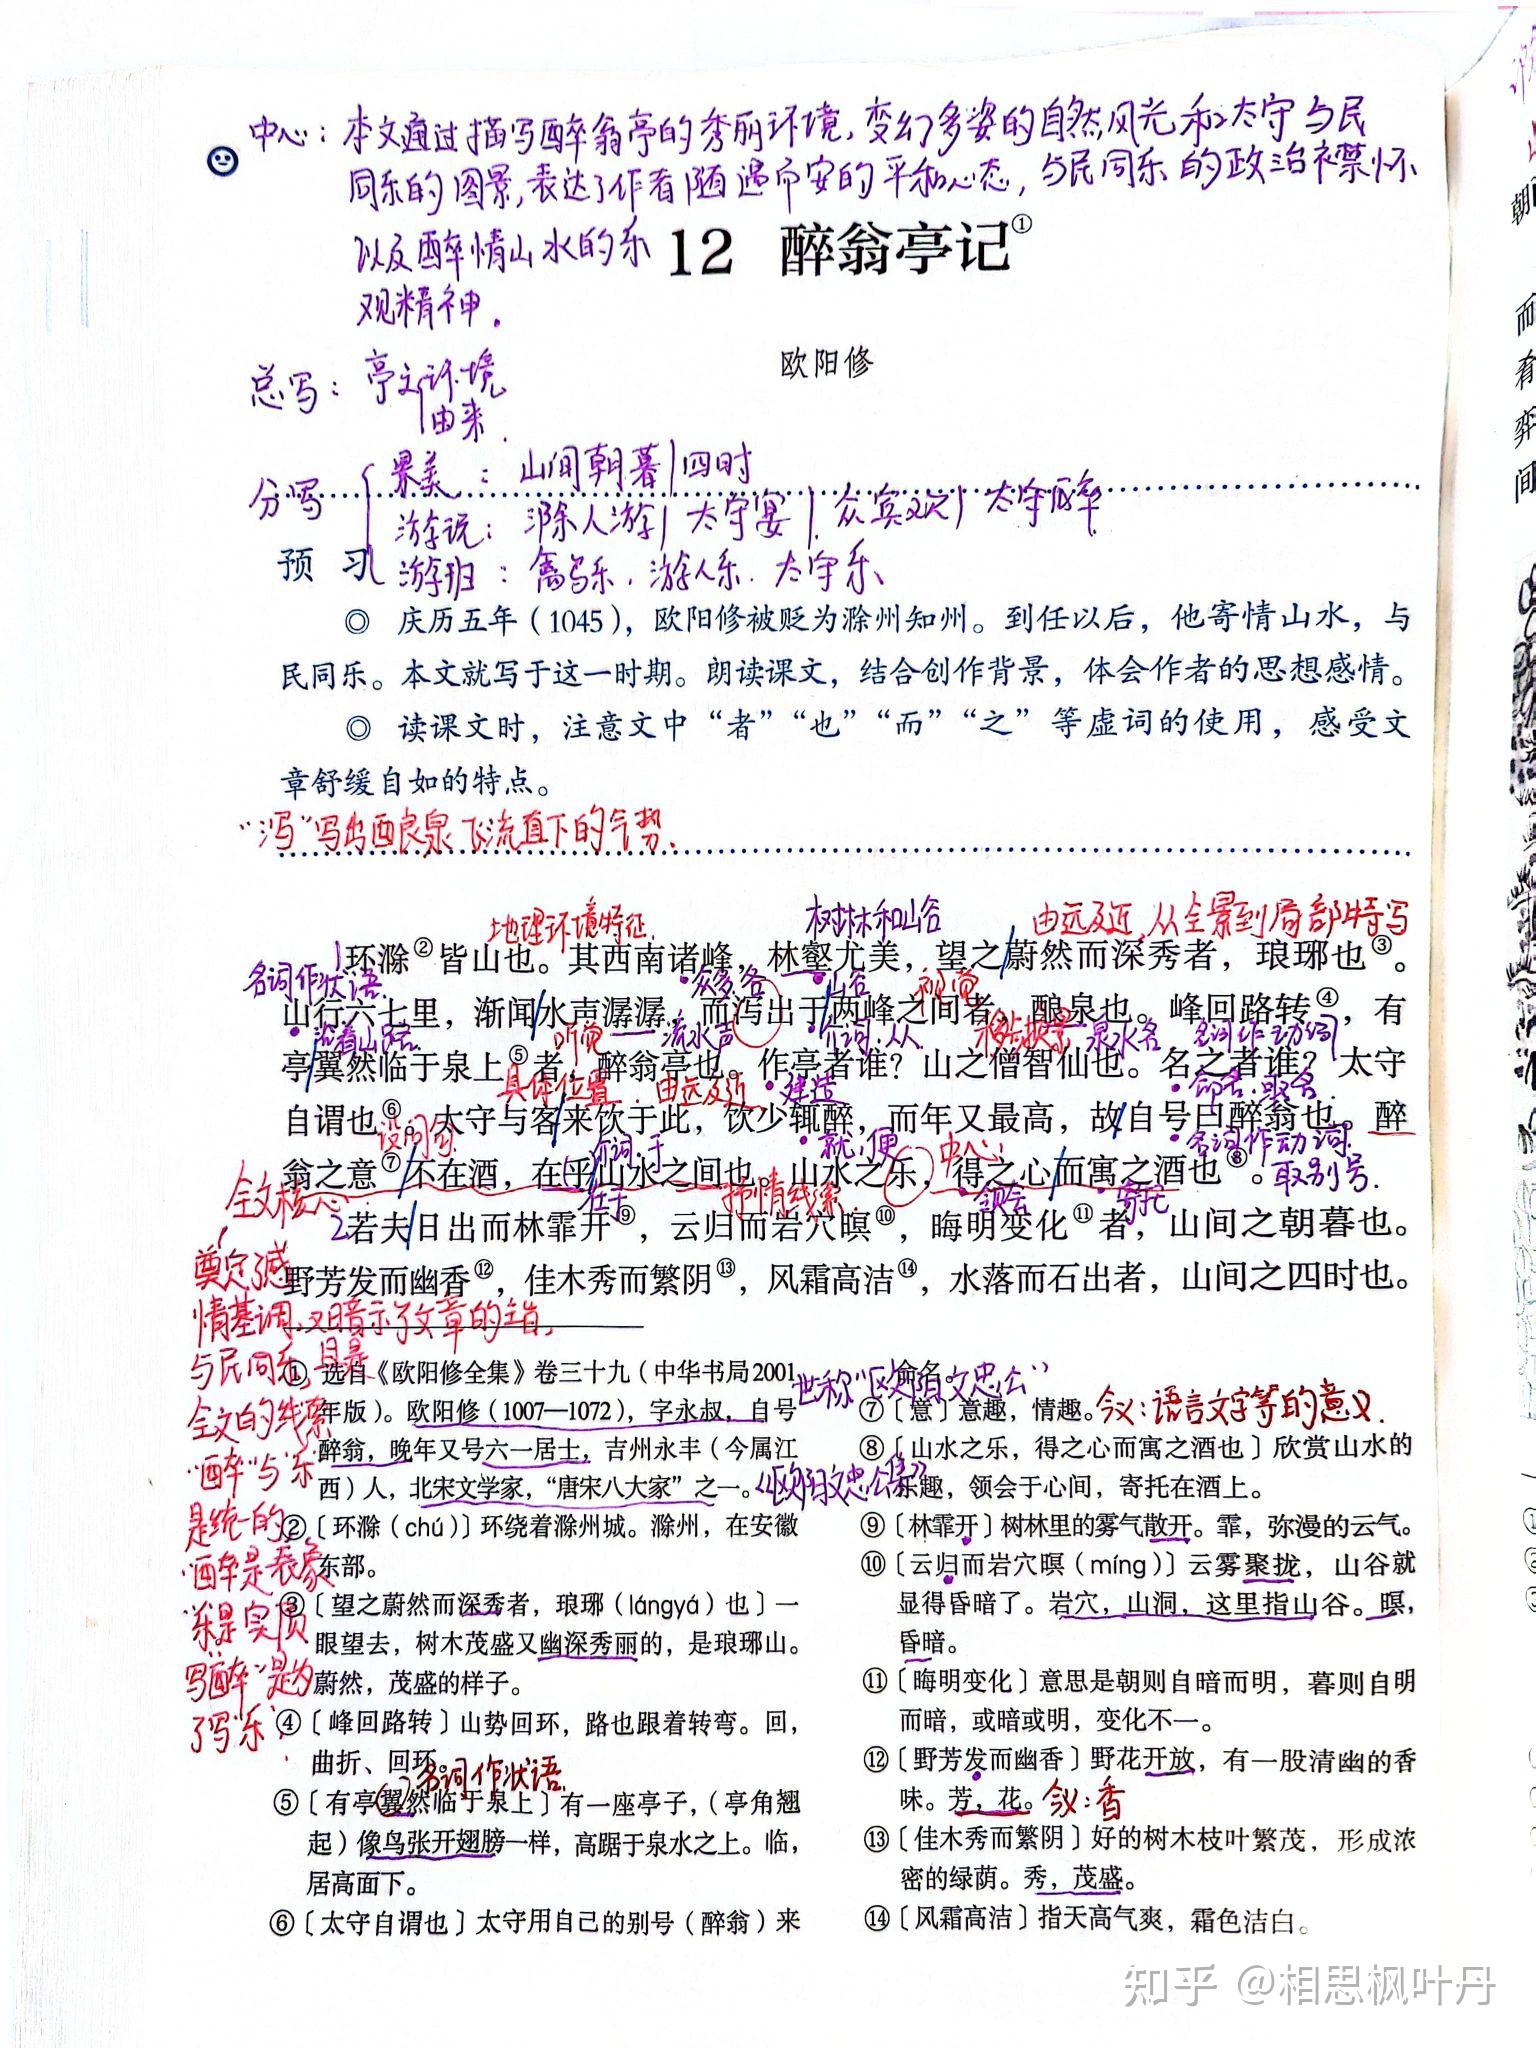 中心：本文通过描写醉翁亭的秀丽环境，变幻多姿的自然风光和太守与民
同乐的图景，表达了作者随遇而安的平和心态，与民同乐的政治襟怀
以及醉情山水的乐
观精神.
12 醉翁亭记①
欧阳修
总写：亭文环境
由来.
分写
景美：山间朝暮|四时
游说：滁人游|太守宴|众宾欢|太守醉
预 习
游班：禽鸟乐.游人乐.太守乐
◎ 庆历五年（1045），欧阳修被贬为滁州知州。到任以后，他寄情山水，与
民同乐。本文就写于这一时期。朗读课文，结合创作背景，体会作者的思想感情。
◎ 读课文时，注意文中“者”“也”“而”“之”等虚词的使用，感受文
章舒缓自如的特点。
“泻”写出酉良泉飞流直下的气势.
地理环境特征.
树林和山谷
由远及近,从全景到局部特写
1环滁②皆山也。其西南诸峰，林壑尤美，望之蔚然而深秀者，琅琊也③。
名词作状语.
众多.各
山谷
视觉
山行六七里，渐闻水声潺潺，而泻出于两峰之间者，酿泉也。峰回路转④，有
沿着山路.
听觉
流水声
介词.从
移步换景
泉水名
名词作动词
亭翼然临于泉上⑤者，醉翁亭也。作亭者谁？山之僧智仙也。名之者谁？太守
具体位置.由远及近
建造
命名.取名
自谓也⑥。太守与客来饮于此，饮少辄醉，而年又最高，故自号曰醉翁也。醉
设问句
介词.于
就.便
中心
名词作动词.
翁之意⑦不在酒，在乎山水之间也。山水之乐，得之心而寓之酒也⑧。
取别号.
全文核心
在于
抒情线索.
领会
寄托
2若夫日出而林霏开⑨，云归而岩穴暝⑩，晦明变化⑪者，山间之朝暮也。
野芳发而幽香⑫，佳木秀而繁阴⑬，风霜高洁⑭，水落而石出者，山间之四时也。
奠定了感
情基调,又暗示了文章的主旨,
与民同乐,且是
全文的线索
“醉”与“乐
是统一的
“醉是表象
“乐是实质
写“醉”是为
了写“乐”.
① 选自《欧阳修全集》卷三十九（中华书局2001
年版）。欧阳修（1007—1072），字永叔，自号
醉翁，晚年又号六一居士，吉州永丰（今属江
西）人，北宋文学家，“唐宋八大家”之一。
世称“欧阳文忠公”
《欧阳文忠公集》
②〔环滁（chú）〕环绕着滁州城。滁州，在安徽
东部。
③〔望之蔚然而深秀者，琅琊（lángyá）也〕一
眼望去，树木茂盛又幽深秀丽的，是琅琊山。
蔚然，茂盛的样子。
④〔峰回路转〕山势回环，路也跟着转弯。回，
曲折、回环。
名词作状语.
⑤〔有亭翼然临于泉上〕有一座亭子，（亭角翘
起）像鸟张开翅膀一样，高踞于泉水之上。临，
居高面下。
⑥〔太守自谓也〕太守用自己的别号（醉翁）来
命名。
⑦〔意〕意趣，情趣。
今义：语言文字等的意义.
⑧〔山水之乐，得之心而寓之酒也〕欣赏山水的
乐趣，领会于心间，寄托在酒上。
⑨〔林霏开〕树林里的雾气散开。霏，弥漫的云气。
⑩〔云归而岩穴暝（míng）〕云雾聚拢，山谷就
显得昏暗了。岩穴，山洞，这里指山谷。暝，
昏暗。
⑪〔晦明变化〕意思是朝则自暗而明，暮则自明
而暗，或暗或明，变化不一。
⑫〔野芳发而幽香〕野花开放，有一股清幽的香
味。芳，花。
今义：香
⑬〔佳木秀而繁阴〕好的树木枝叶繁茂，形成浓
密的绿荫。秀，茂盛。
⑭〔风霜高洁〕指天高气爽，霜色洁白。
朝
而
有
弈
间
知乎 @相思枫叶丹